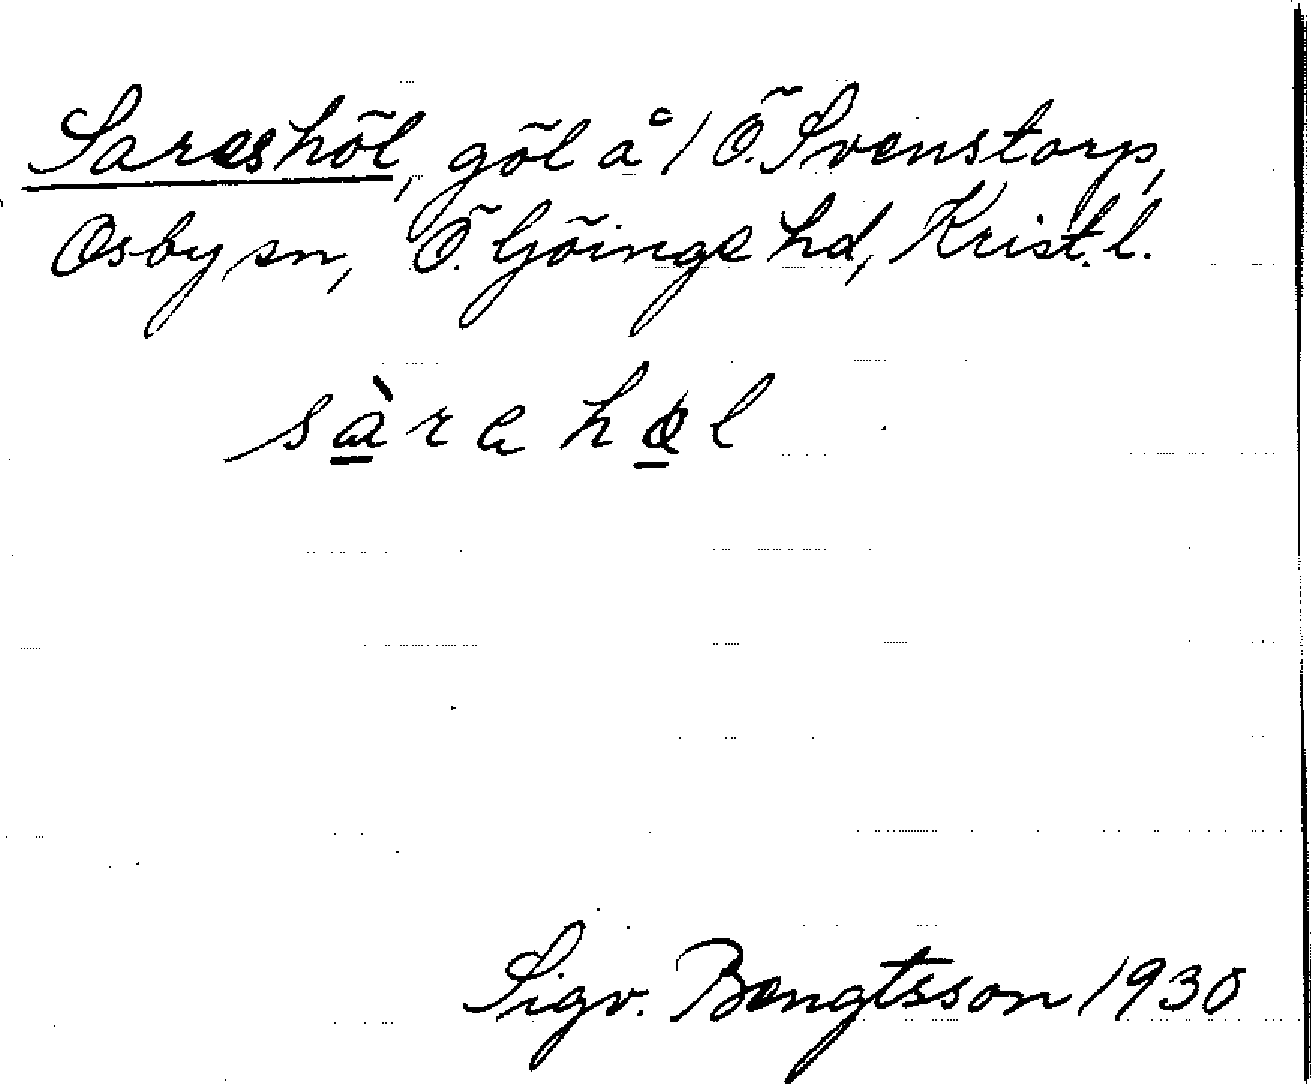 Sareshöl, göl å 1 Ö. Svenstorp,
Osby sn, Ö. Göinge hd, Krist. l.
sàrahøl
Sigv. Bengtsson 1930